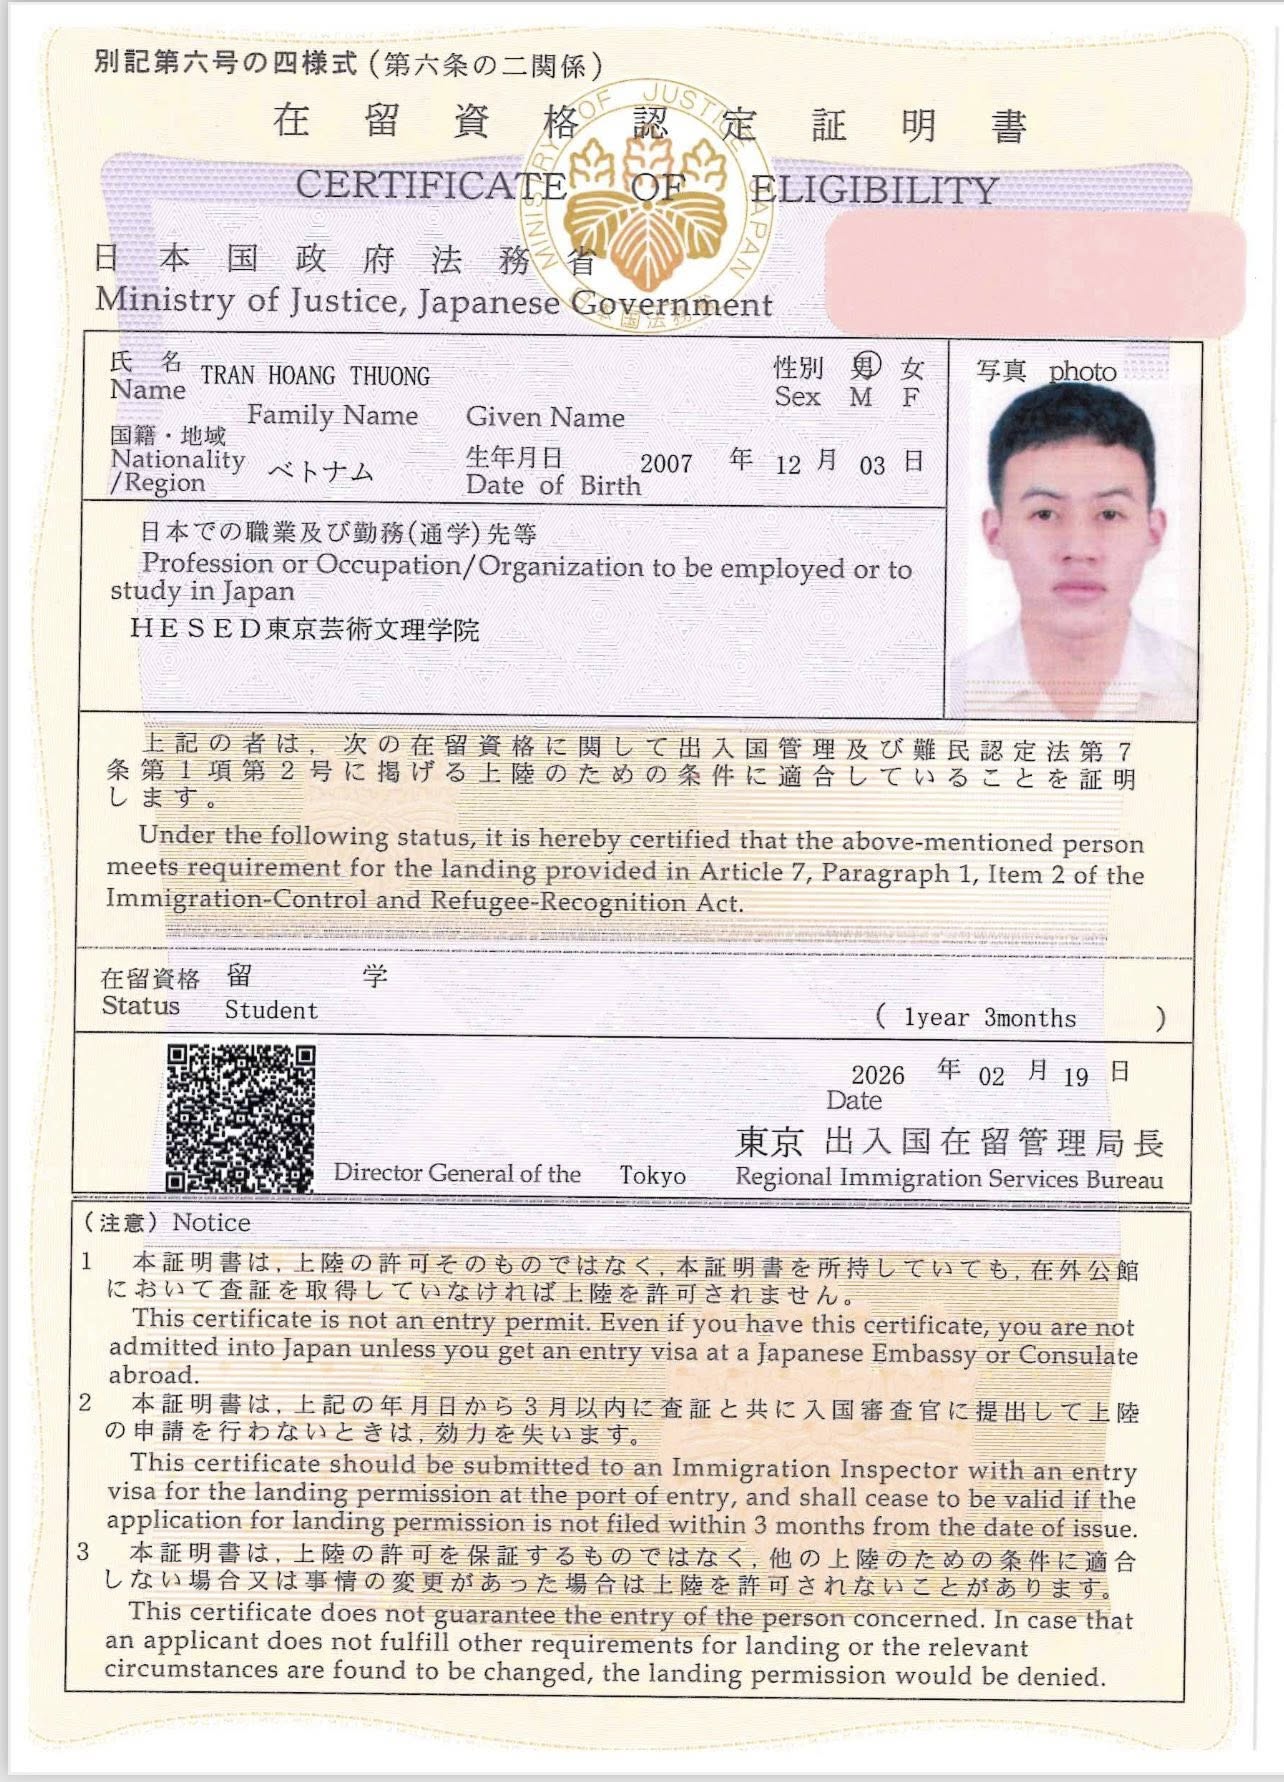 別記第六号の四様式(第六条の二関係)
在留資格認定証明書
CERTIFICATE OF ELIGIBILITY
MINISTRY OF JUSTICE JAPAN
日本国法務省
日本国政府法務省
Ministry of Justice, Japanese Government
氏名 TRAN HOANG THUONG 性別 男 女
Name Sex M F
Family Name Given Name
写真 photo
国籍・地域 生年月日 2007 年 12 月 03 日
Nationality ベトナム Date of Birth
/Region
日本での職業及び勤務(通学)先等
Profession or Occupation/Organization to be employed or to
study in Japan
HESED東京芸術文理学院
上記の者は,次の在留資格に関して出入国管理及び難民認定法第7
条第1項第2号に掲げる上陸のための条件に適合していることを証明
します。
Under the following status, it is hereby certified that the above-mentioned person
meets requirement for the landing provided in Article 7, Paragraph 1, Item 2 of the
Immigration-Control and Refugee-Recognition Act.
在留資格 留学
Status Student ( 1year 3months )
2026 年 02 月 19 日
Date
東京 出入国在留管理局長
Director General of the Tokyo Regional Immigration Services Bureau
(注意) Notice
1 本証明書は,上陸の許可そのものではなく,本証明書を所持していても,在外公館
において査証を取得していなければ上陸を許可されません。
This certificate is not an entry permit. Even if you have this certificate, you are not
admitted into Japan unless you get an entry visa at a Japanese Embassy or Consulate
abroad.
2 本証明書は,上記の年月日から3月以内に査証と共に入国審査官に提出して上陸
の申請を行わないときは,効力を失います。
This certificate should be submitted to an Immigration Inspector with an entry
visa for the landing permission at the port of entry, and shall cease to be valid if the
application for landing permission is not filed within 3 months from the date of issue.
3 本証明書は,上陸の許可を保証するものではなく,他の上陸のための条件に適合
しない場合又は事情の変更があった場合は上陸を許可されないことがあります。
This certificate does not guarantee the entry of the person concerned. In case that
an applicant does not fulfill other requirements for landing or the relevant
circumstances are found to be changed, the landing permission would be denied.